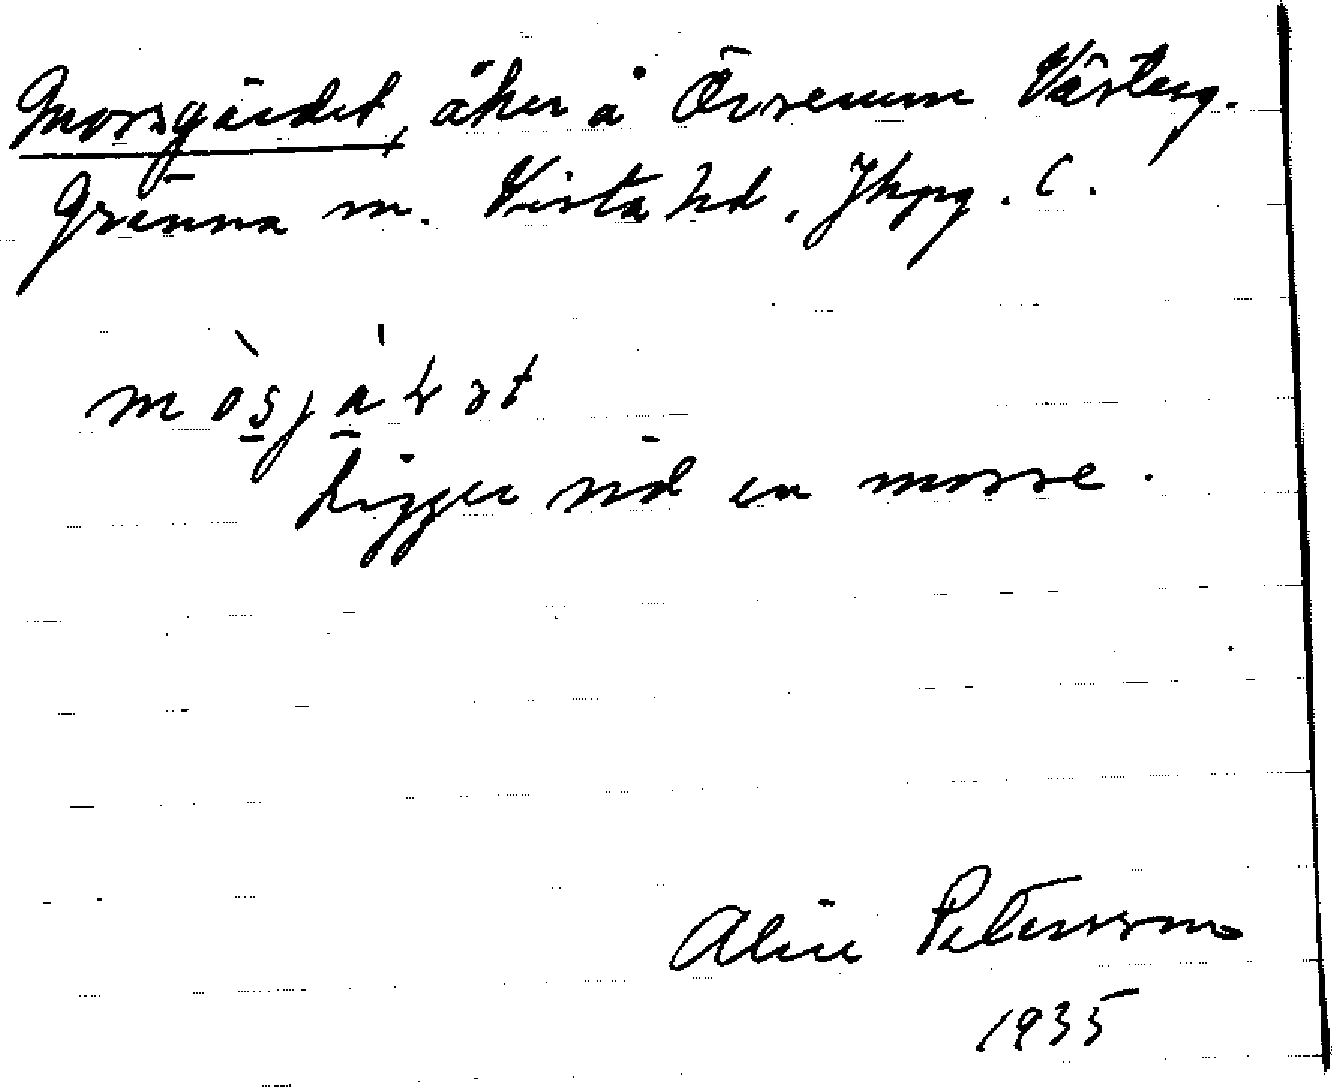 Morsgärdet, åker å Övrenum Västerg.
Gränna sn. Vista hd. Jkpg. l.
Ligger vid en mosse.
Alice Petersson
1935